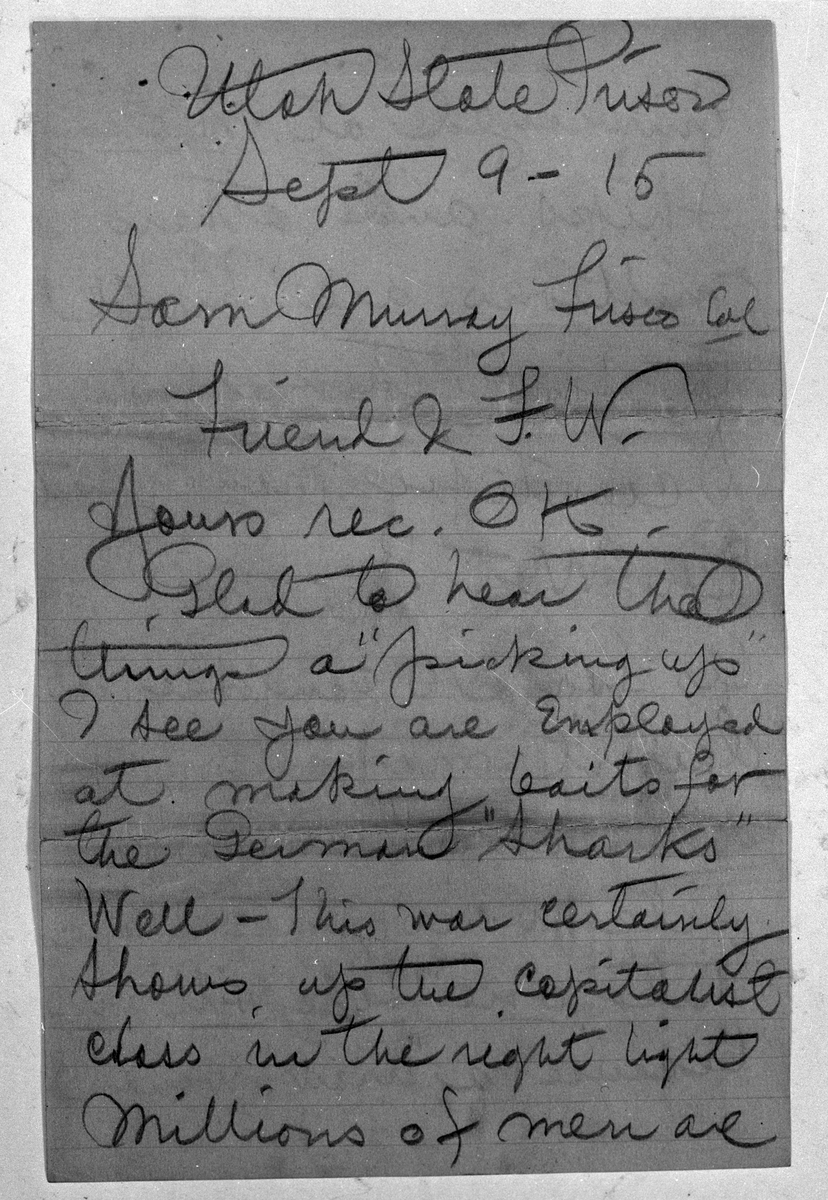 Utah State Prison
Sept 9 - 15
Sam Murray Frisco Cal
Friend & F. W.
Yours rec. OK -
Glad to hear that
things a "picking up"
I see you are Employed
at making baits for
the German "sharks"
Well - This war certainly
shows up the capitalist
class in the right light
Millions of men are